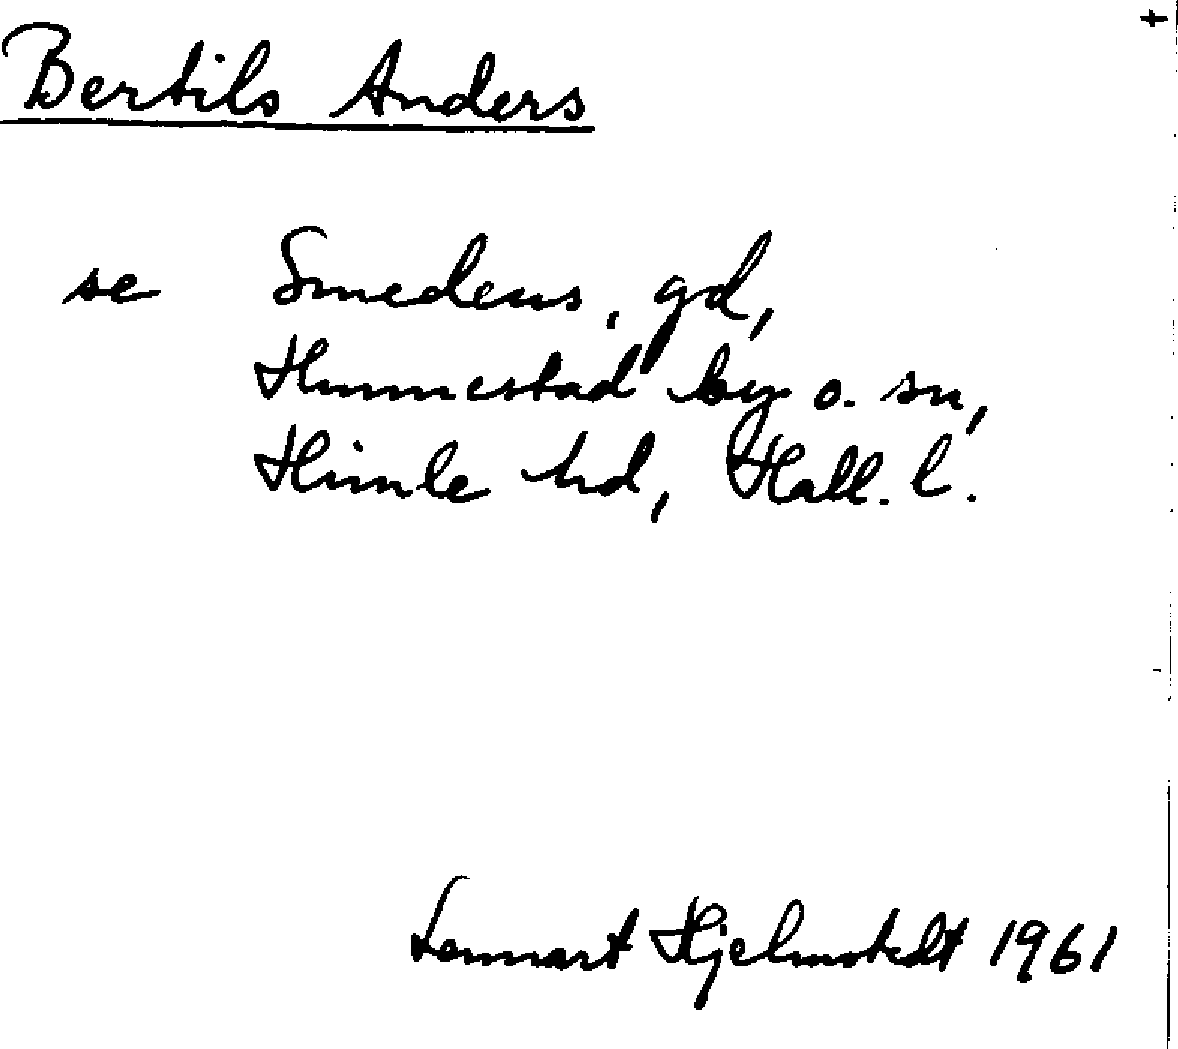 Bertils Anders
se Smedens, gd,
Hunnestad by o. sn,
Himle hd, Hall. l.
Lennart Hjelmstedt 1961